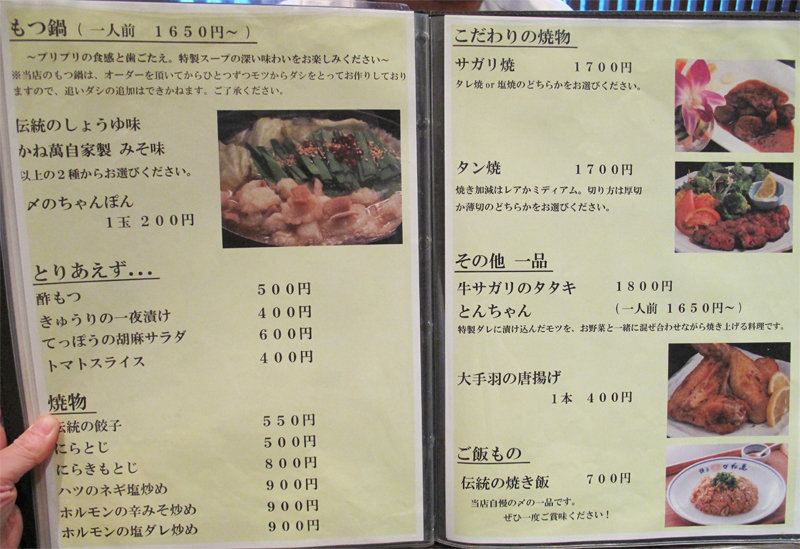 もつ鍋（一人前　１６５０円～）
～プリプリの食感と歯ごたえ。特製スープの深い味わいをお楽しみください～
※当店のもつ鍋は、オーダーを頂いてからひとつずつモツからダシをとってお作りしており
ますので、追いダシの追加はできかねます。ご了承ください。
伝統のしょうゆ味
かね萬自家製 みそ味
以上の２種からお選びください。
〆のちゃんぽん
１玉 ２００円
とりあえず…
酢もつ　５００円
きゅうりの一夜漬け　４００円
てっぽうの胡麻サラダ　６００円
トマトスライス　４００円
焼物
伝統の餃子　５５０円
にらとじ　５００円
にらきもとじ　８００円
ハツのネギ塩炒め　９００円
ホルモンの辛みそ炒め　９００円
ホルモンの塩ダレ炒め　９００円
こだわりの焼物
サガリ焼　１７００円
タレ焼 or 塩焼のどちらかをお選びください。
タン焼　１７００円
焼き加減はレアかミディアム。切り方は厚切
か薄切のどちらかをお選びください。
その他 一品
牛サガリのタタキ　１８００円
とんちゃん　（一人前 １６５０円～）
特製ダレに漬け込んだモツを、お野菜と一緒に混ぜ合わせながら焼き上げる料理です。
大手羽の唐揚げ
１本　４００円
ご飯もの
伝統の焼き飯　７００円
当店自慢の〆の一品です。
ぜひ一度ご賞味ください！